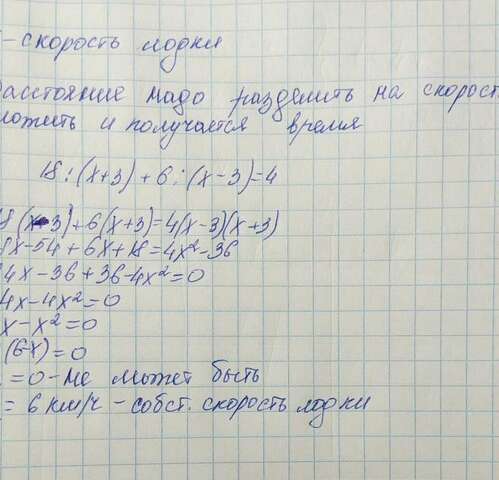 -скорость лодки
расстояние надо разделить на скорост
ложить и получается время
18:(х+3)+6:(х-3)=4
8(х-3)+6(х+3)=4(х-3)(х+3)
8х-54+6х+18=4х²-36
4х-36+36-4х²=0
4х-4х²=0
х-х²=0
(6-х)=0
=0-не может быть
=6км/ч-собст. скорость лодки